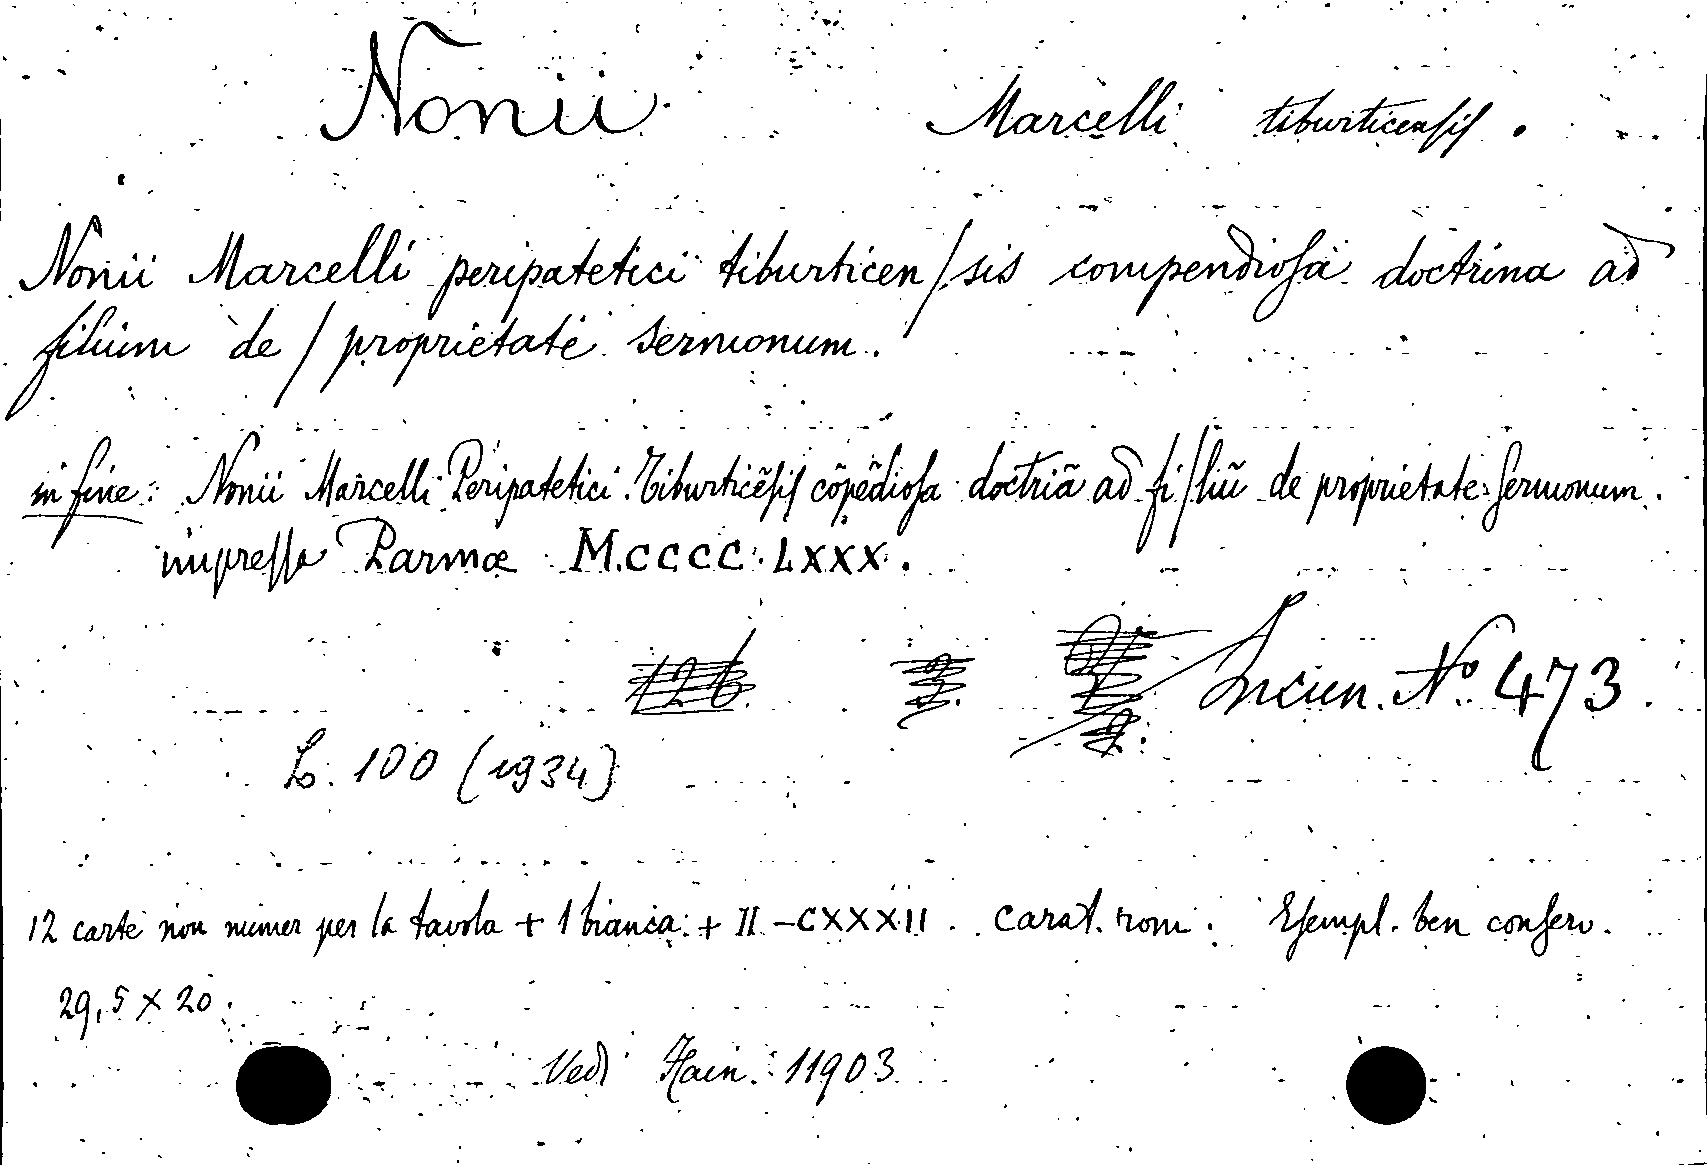 Nonii Marcelli tiburticenſiſ.
Nonii Marcelli peripatetici tiburticen/sis compendioſa doctrina ad
filium de / proprietate sermonum.
in fine: Nonii Marcelli Peripatetici Tiburticẽſiſ cõpẽdioſa doctriã ad fi/liũ de proprietate ſermonum.
impreſſa Parmæ M.CCCC.LXXX.
126 3. Incun. Nº 473
L. 100 (1934)
12 carte non numer per la tavola + 1 bianca + II - CXXXII. Carat. rom. Eſempl. ben conſerv.
29,5 X 20.
Vedi Hain. 11903